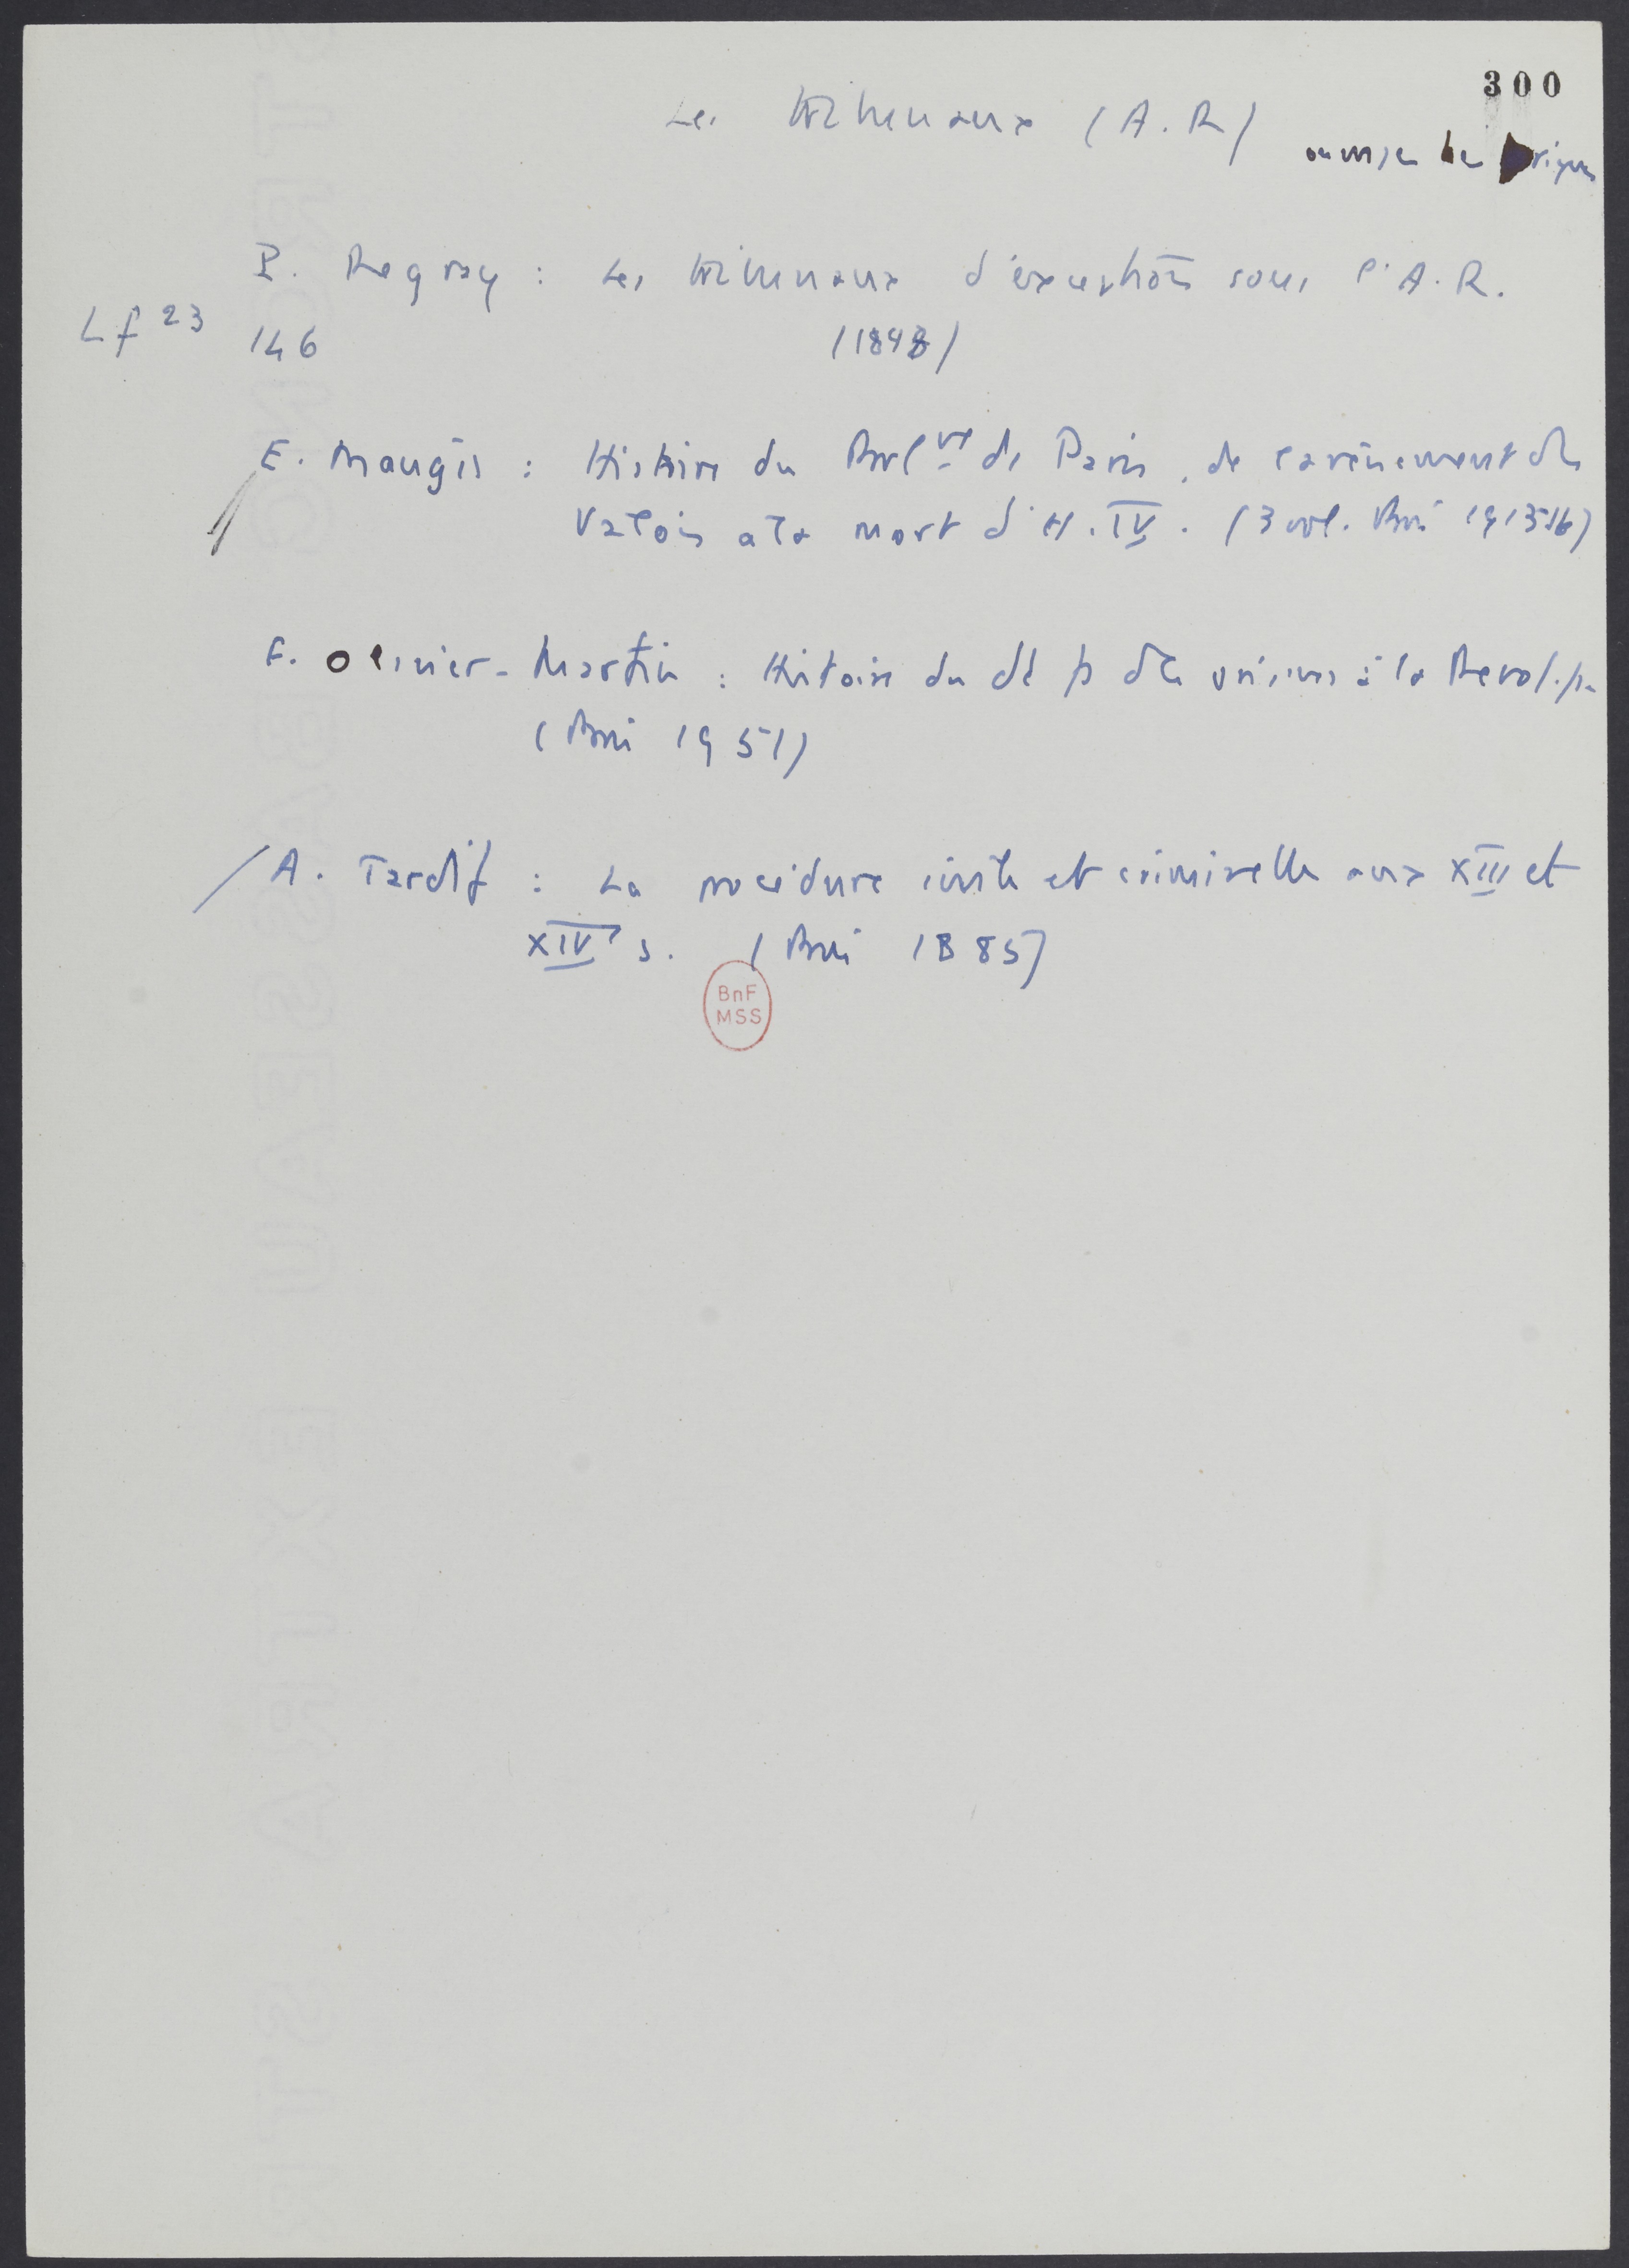 300
Les tribunaux (A.R)
P. Regray : Les tribunaux d'exception sous l'A.R.
Lf 23 146 (1898)
E. Maugis : Histoire du Parlnt de Paris, de l'avènement des
Valois à la mort d'H. IV. (3 vol. Paris 1913-16)
F. Olivier-Martin : Histoire du dt fs des origines à la Revol.
(Paris 1951)
A. Tardif : La procédure civile et criminelle aux XIII et
XIVe s. (Paris 1885)
BnF
MSS